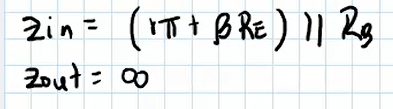 Zin = (rπ + βRE) || RB
Zout = ∞